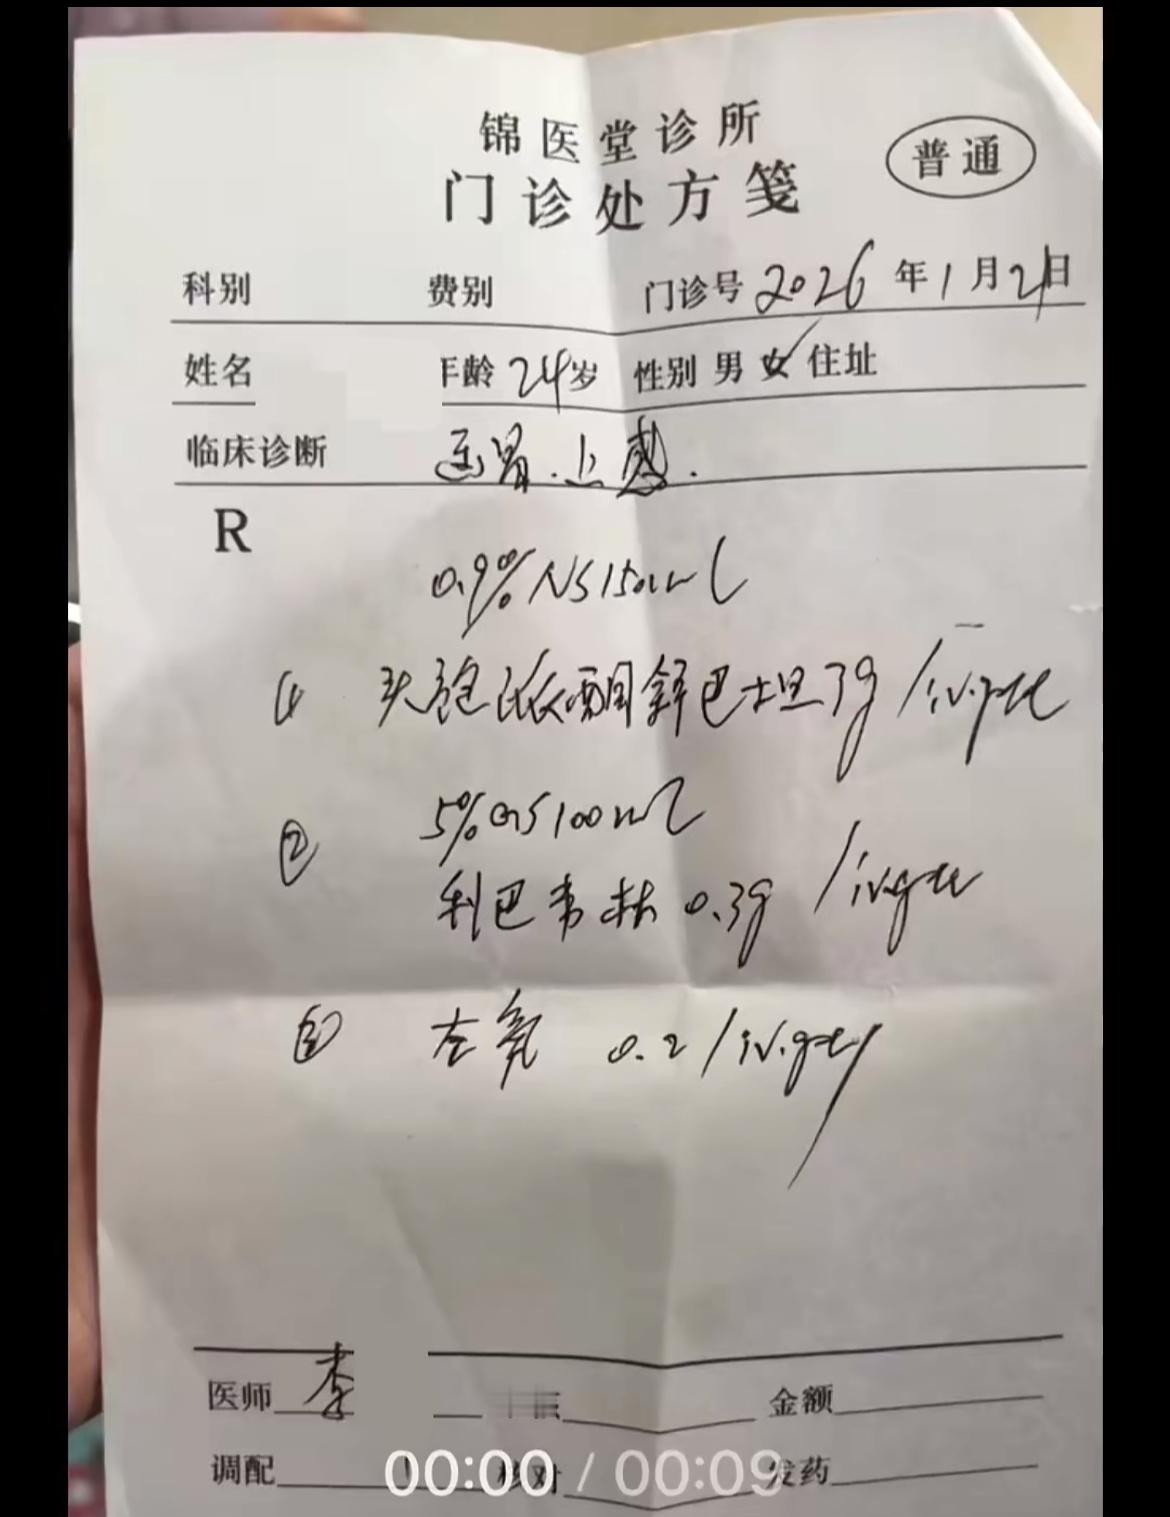 锦医堂诊所
门诊处方笺
普通
科别 费别 门诊号 2026年1月21日
姓名 年龄 24岁 性别 男 女✓ 住址
临床诊断 胃.上感.
R
0.9% NS 150ml
① 头孢哌酮舒巴坦 3g / iv.gtt
5% GS 100ml
② 利巴韦林 0.3g / iv.gtt
③ 左氧 0.2 / iv.gtt
医师 李 金额
调配 核对 发药
00:00 / 00:09